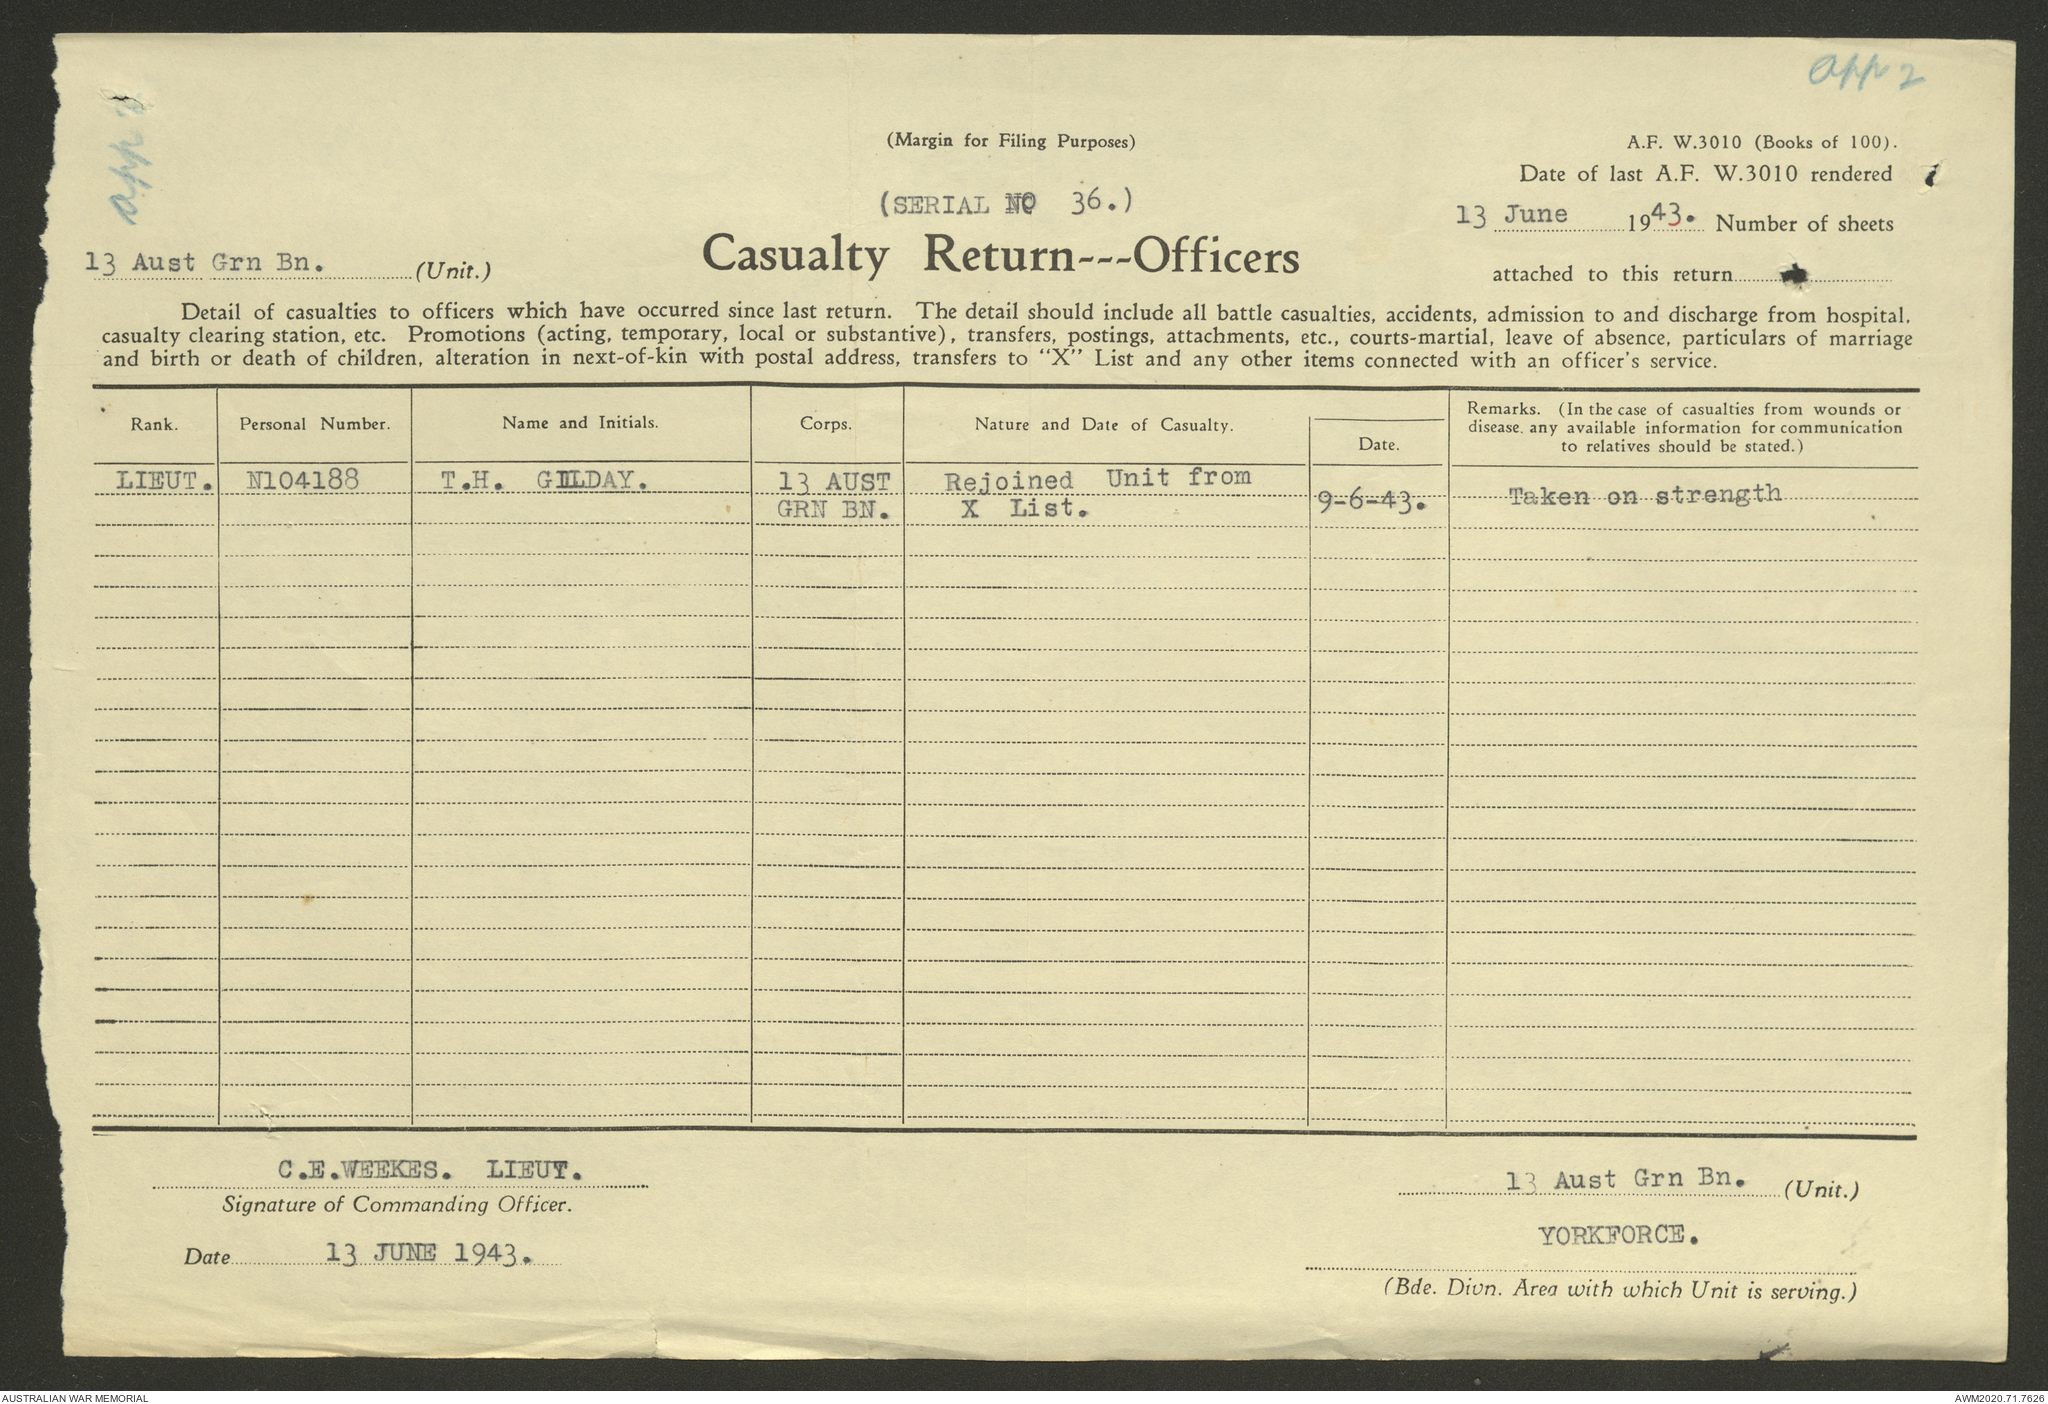 app 2
app 2
(Margin for Filing Purposes)
A.F. W.3010 (Books of 100).
Date of last A.F. W.3010 rendered
(SERIAL NO 36.)
13 June 1943. Number of sheets
13 Aust Grn Bn. (Unit.)
Casualty Return---Officers
attached to this return
Detail of casualties to officers which have occurred since last return. The detail should include all battle casualties, accidents, admission to and discharge from hospital,
casualty clearing station, etc. Promotions (acting, temporary, local or substantive), transfers, postings, attachments, etc., courts-martial, leave of absence, particulars of marriage
and birth or death of children, alteration in next-of-kin with postal address, transfers to "X" List and any other items connected with an officer's service.
Rank. Personal Number. Name and Initials. Corps. Nature and Date of Casualty. Date.
Remarks. (In the case of casualties from wounds or
disease, any available information for communication
to relatives should be stated.)
LIEUT. N104188 T.H. GILDAY. 13 AUST Rejoined Unit from
GRN BN. X List. 9-6-43. Taken on strength
C.E.WEEKES. LIEUT.
Signature of Commanding Officer.
Date 13 JUNE 1943.
13 Aust Grn Bn. (Unit.)
YORKFORCE.
(Bde. Divn. Area with which Unit is serving.)
AUSTRALIAN WAR MEMORIAL
AWM2020.71.7626